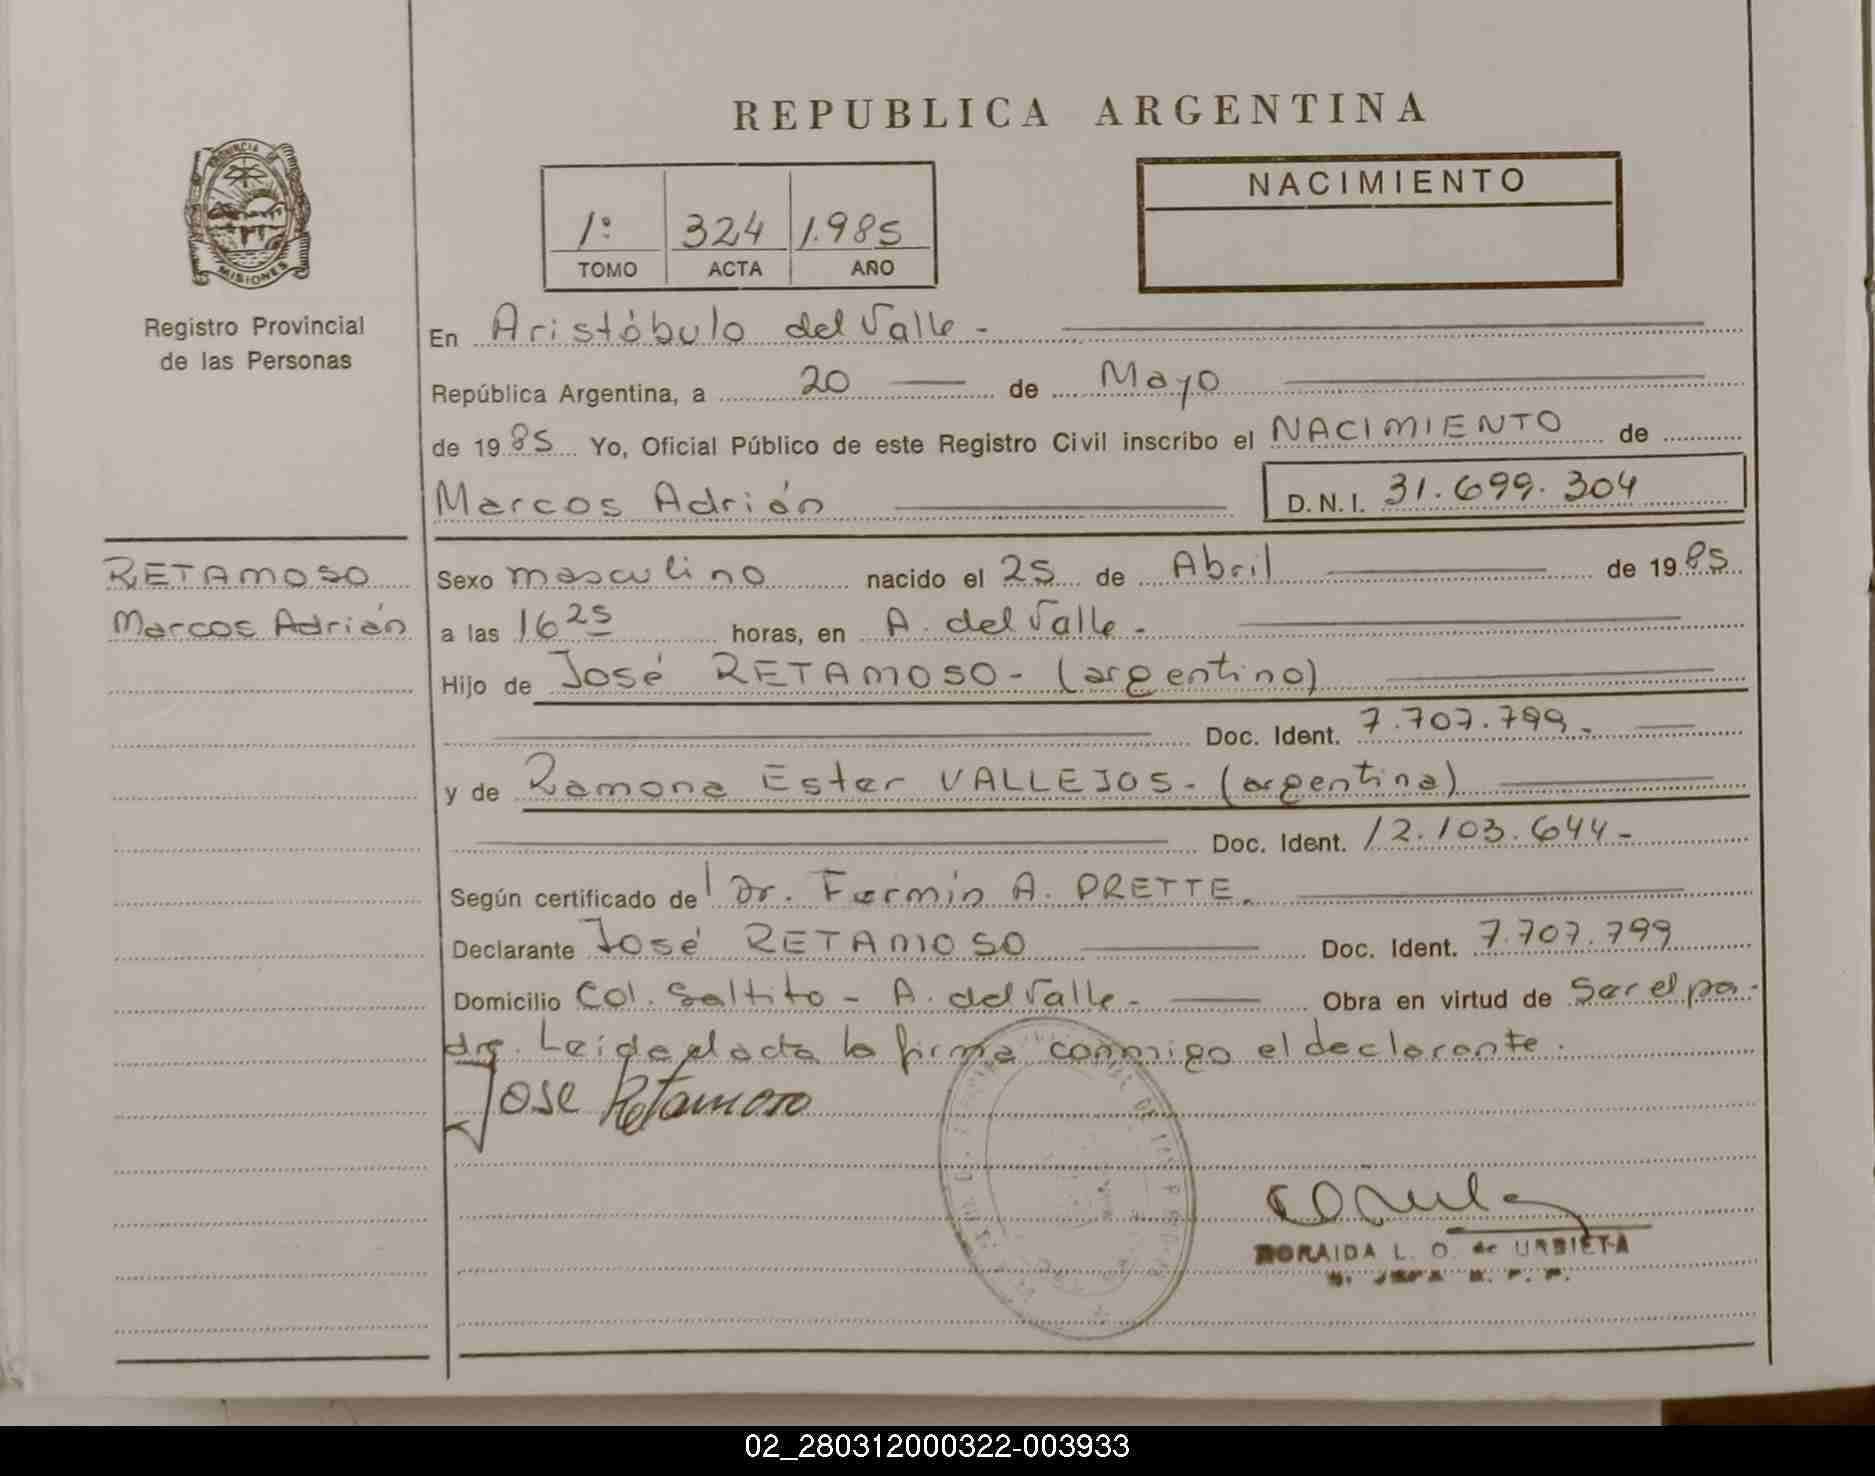 REPUBLICA ARGENTINA
PROVINCIA DE
MISIONES
Registro Provincial
de las Personas
1º 324 1.985
TOMO ACTA AÑO
NACIMIENTO
En Aristóbulo del Valle -
República Argentina, a 20 de Mayo
de 1985 Yo, Oficial Público de este Registro Civil inscribo el NACIMIENTO de
Marcos Adrián D.N.I. 31.699.304
RETAMOSO
Marcos Adrián
Sexo masculino nacido el 25 de Abril de 1985
a las 16 25 horas, en A. del Valle -
Hijo de José RETAMOSO - (argentino)
Doc. Ident. 7.707.799 -
y de Ramona Ester VALLEJOS - (argentina)
Doc. Ident. 12.103.644 -
Según certificado de Dr. Fermín A. PRETTE.
Declarante José RETAMOSO Doc. Ident. 7.707.799
Domicilio Col. Saltito - A. del Valle - Obra en virtud de Ser el pa-
dre. Leída el acta la firma conmigo el declarante.
Jose Retamoso
L. O. de URBIETA
02_280312000322-003933